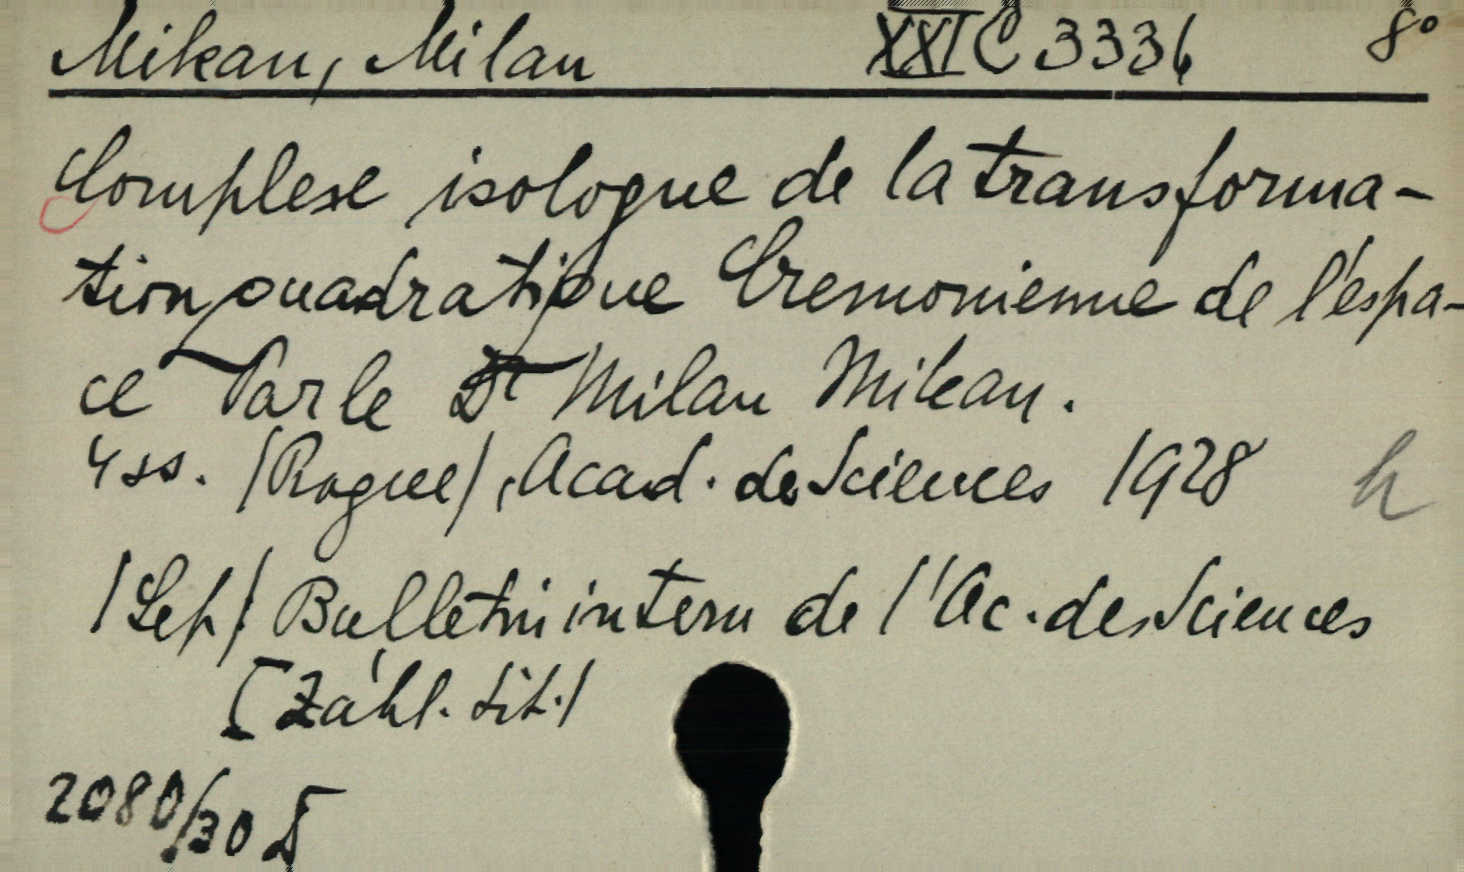 Mikan, Milan XXI C 3336 8°
Complexe isologue de la transforma-
tion quadratique Cremonienne de l'espa-
ce Par le Dr Milan Mikan.
4 ss. /Prague/, Acad. de Sciences 1928 h
/Sep/ Bulletin intern de l'Ac. des Sciences
[Záhl. tit./
2080/30 D